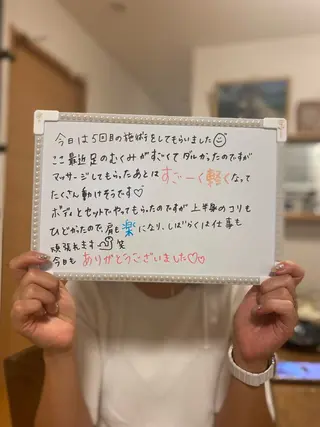 今日は5回目の施術をしてもらいました
ここ最近足のむくみがすごくてダルかったのですが
マッサージしてもらったあとはすごーく軽くなって
たくさん動けそうです♡
ボディとセットでやってもらったのですが上半身のコリも
ひどかったので、肩も楽になり、しばらくは仕事も
頑張れます 笑
今日もありがとうございました♡♡